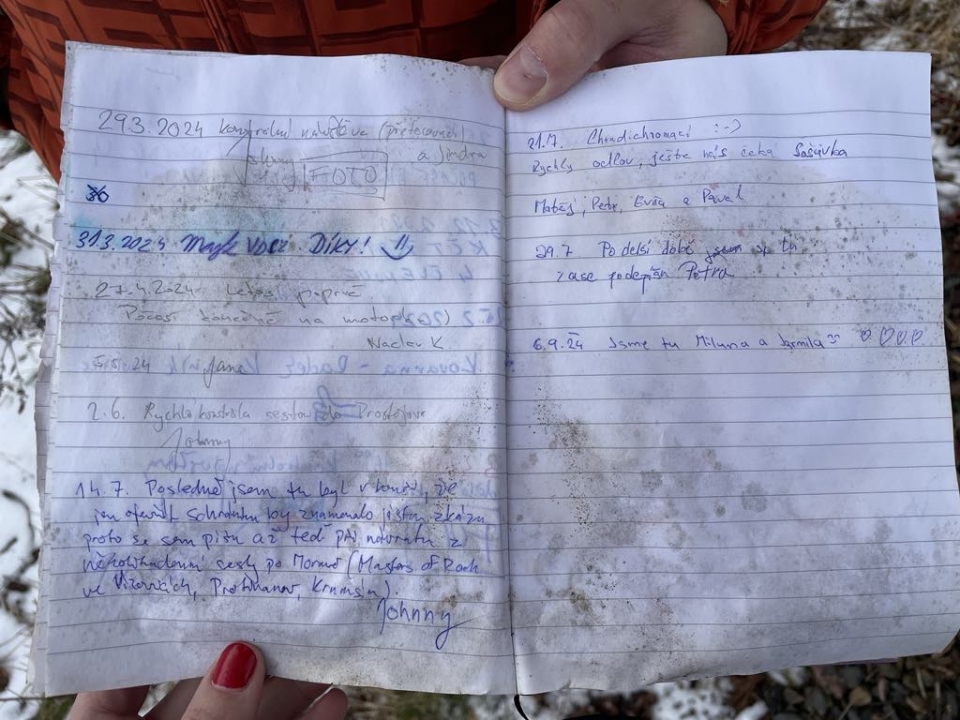 29.3.2024 kontrolní návštěva (přefocování)
Johnny a Jindra
FOTO
31.3.2024 Díky!
27.4.2024 Letos poprvé
Počasí konečně na motorku)
Václav K
5.5.24 Jana
2.6. Rychlá kontrola cestou do Prostějova
Johnny
14.7. Posledně jsem tu byl v bouři, že
jen otevřít schránku by znamenalo jistou zkázu
proto se sem píšu až teď při návratu z
několikadenní cesty po Moravě (Masters of Rock
ve Vizovicích, Protivanov, Krumsín).
Johnny
21.7. :-)
Rychlý odlov, ještě nás čeká
Matěj, Petr, Evča a Pavel
29.7 Po delší době jsem se tu
zase podepsán Petra
6.9.24 Jsme tu Miluna a Jarmila ♡♡♡♡